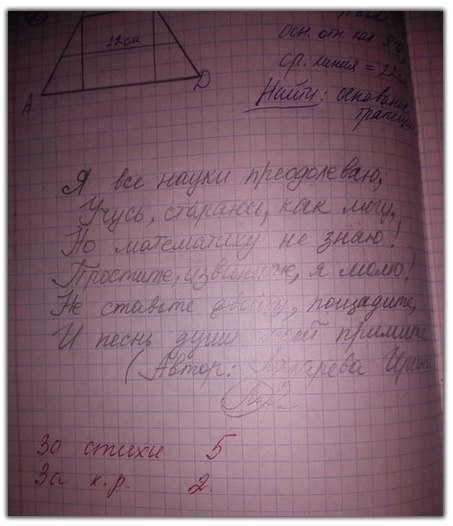 22 см
A
D
осн. отн. как 5:6
ср. линия = 22 см
Найти: основания
трапеции
Я все науки преодолеваю,
Учусь, стараюсь, как могу,
Но математику не знаю!
Простите, извините, я молю!
Не ставьте двойку, пощадите,
И песнь души моей примите
(Автор: Ирин
За стихи 5
За к.р. 2.